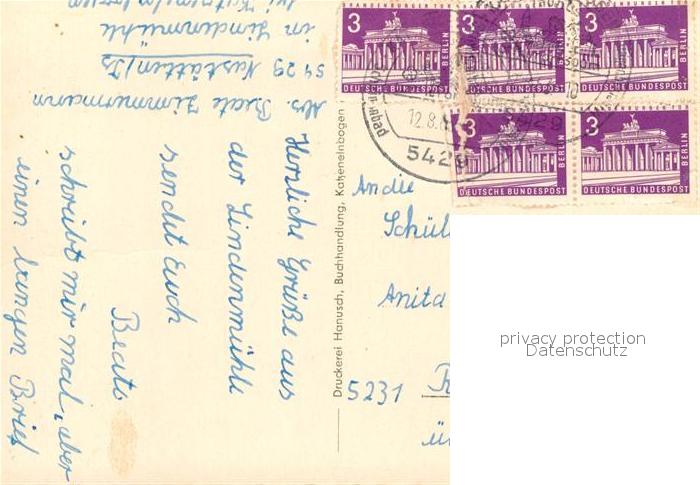 Abs. Beate Zimmermann
5429 Nastätten/Ts
im Lindenmühle
Herzliche Grüße aus
der Lindenmühle
sendet Euch
Beate
schreibt mir mal, aber
einen langen Brief
Druckerei Hanusch, Buchhandlung, Katzenelnbogen
3
BERLIN
DEUTSCHE BUNDESPOST
3
BERLIN
DEUTSCHE BUNDESPOST
3
BERLIN
DEUTSCHE BUNDESPOST
3
BERLIN
DEUTSCHE BUNDESPOST
3
BERLIN
DEUTSCHE BUNDESPOST
12.8.
5429
An die
Schül
Anita
5231
privacy protection
Datenschutz